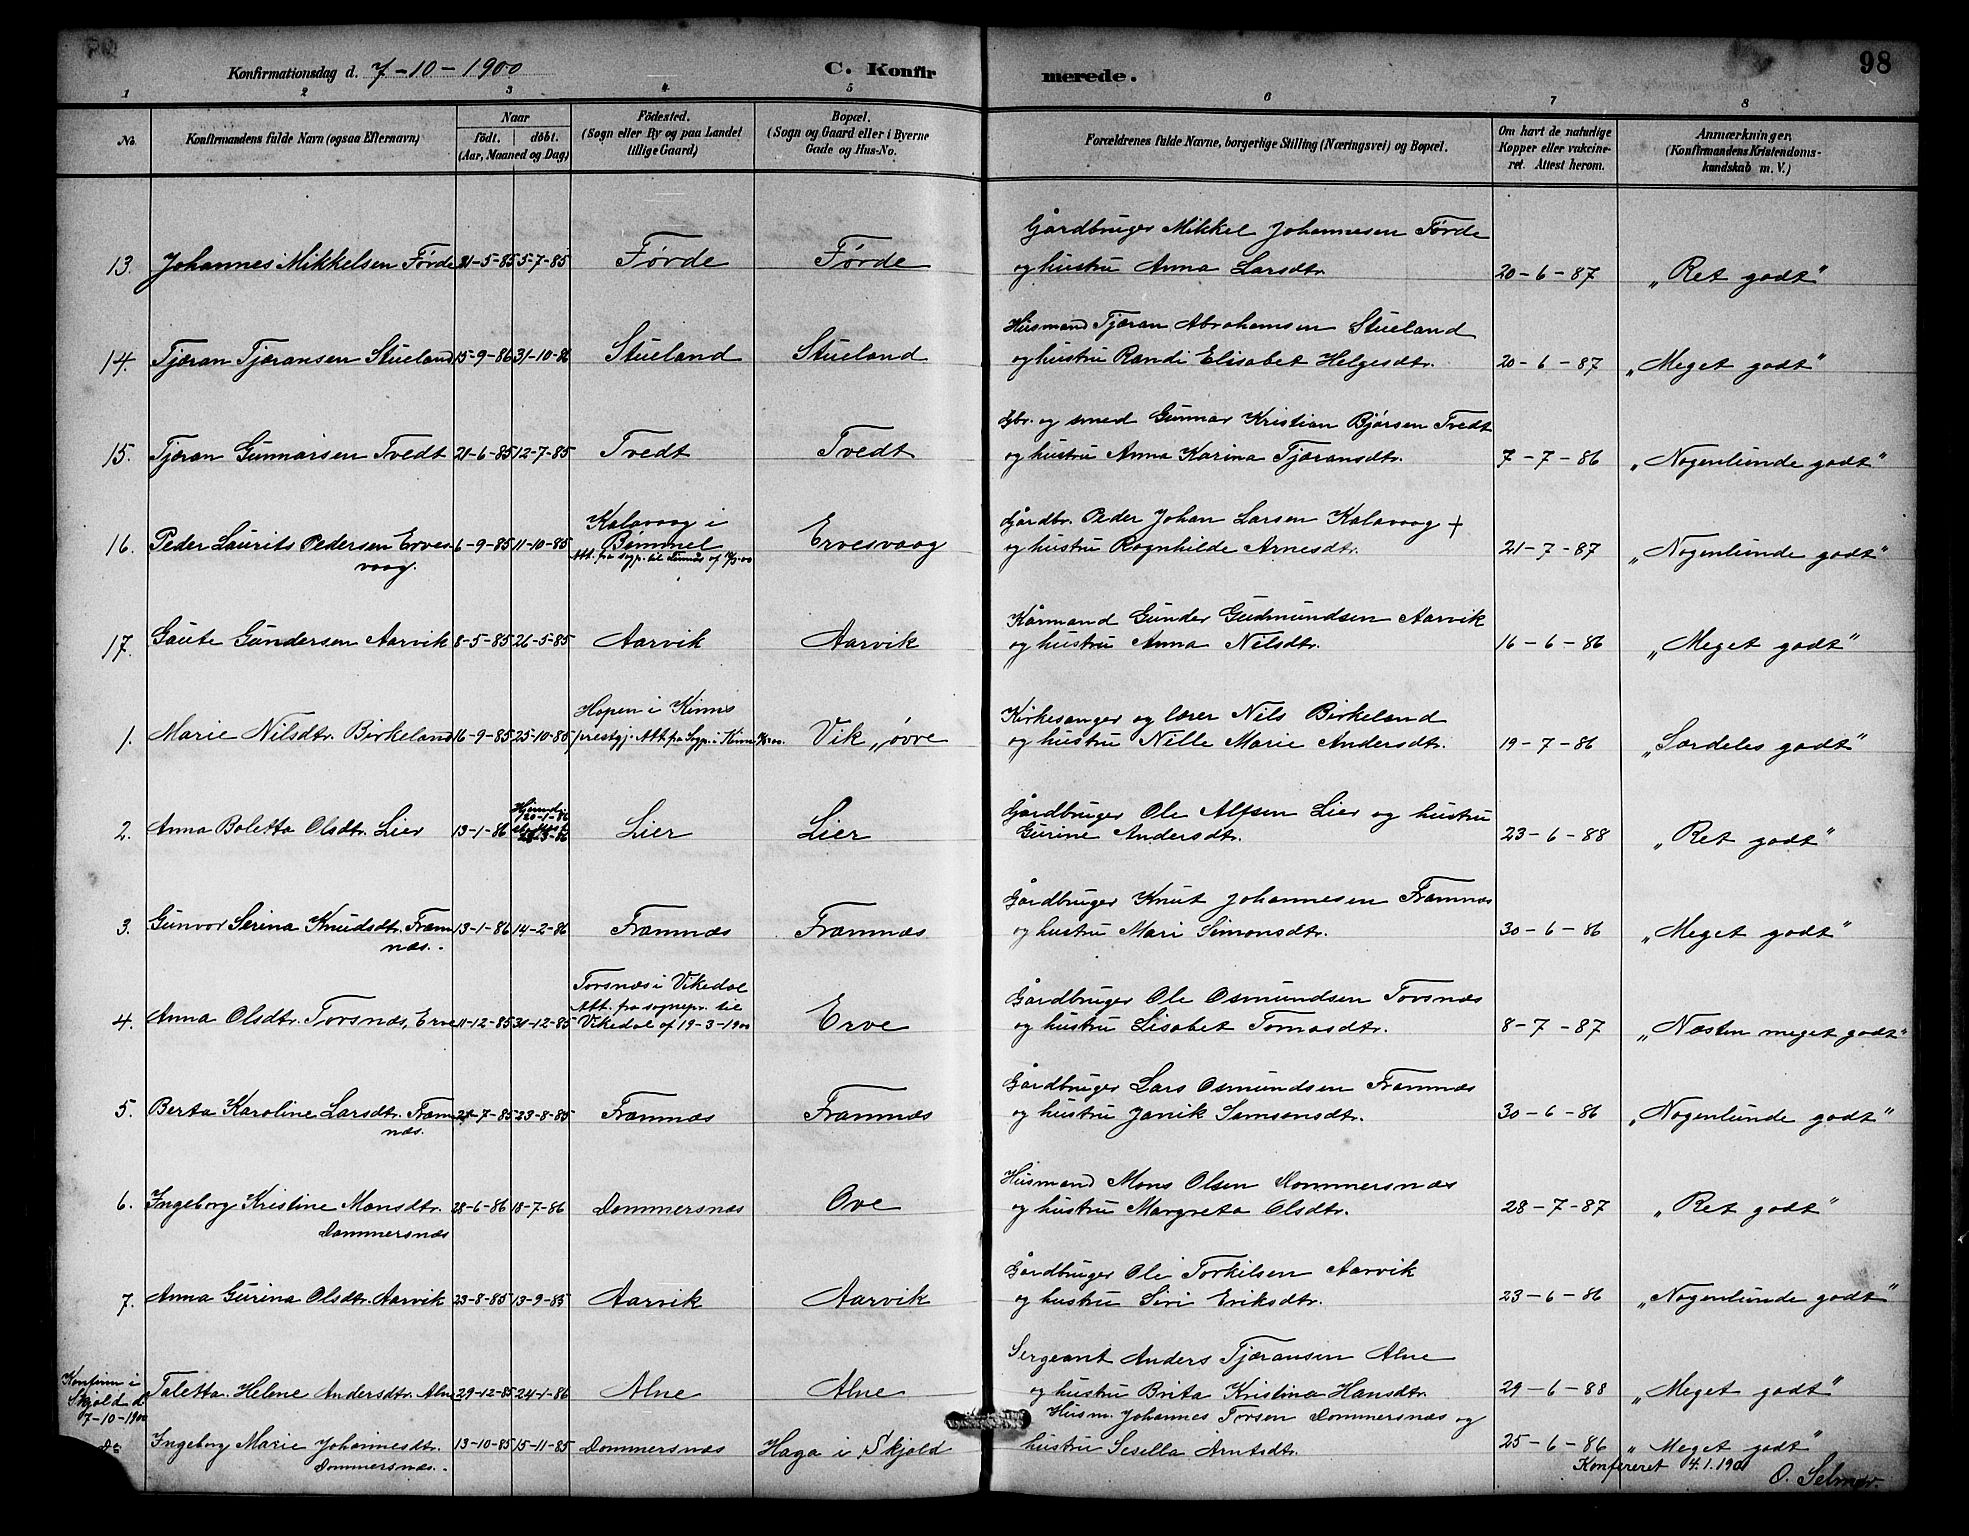 Konfirmationsdag d. 7-10-1900 C. Konfirmerede. 98
1 2 3 4 5 6 7 8
No. Konfirmandens fulde Navn (ogsaa Efternavn) Naar födt. döbt. (Aar, Maaned og Dag) Födested. (Sogn eller By og paa Landet tillige Gaard) Bopæl. (Sogn og Gaard eller i Byerne Gade og Hus-No. Forældrenes fulde Navne, borgerlige Stilling (Næringsvei) og Bopæl. Om havt de naturlige Kopper eller vakcineret. Attest herom. Anmærkninger. (Konfirmandens Kristendomskundskab m. V.)
Gårdbruger Mikkel Johannesen Førde
13. Johannes Mikkelsen Førde 21-5-85 5-7-85 Førde Førde og hustru Anna Larsdtr. 20-6-87 „Ret godt"
Husmand Tjæran Abrahamsen Stueland
14. Tjæran Tjæransen Stueland 15-9-86 31-10-86 Stueland Stueland og hustru Randi Elisabet Helgesdtr. 20-6-87 „Meget godt"
Gbr. og smed Gunnar Kristian Bjørsen Tvedt
15. Tjæran Gunnarsen Tvedt 21-6-85 12-7-85 Tvedt Tvedt og hustru Anna Karina Tjæransdtr. 7-7-86 „Nogenlunde godt"
Kalavaag i Gårdbr. Peder Johan Larsen Kalavaag +
16. Peder Laurits Pedersen Erves- 6-9-85 11-10-85 Bømmel Ervesvaag og hustru Ragnhilde Arnesdtr. 21-7-87 „Nogenlunde godt"
vaag. Att. fra sogp. til Finnås af
Kårmand Gunder Gudmundsen Aarvik
17. Gaute Gundersen Aarvik 8-5-85 26-5-85 Aarvik Aarvik og hustru Anna Nilsdtr. 16-6-86 „Meget godt"
Hopen i Kinns Kirkesanger og lærer Nils Birkeland
1. Marie Nilsdtr. Birkeland 16-9-85 25-10-85 prestgj. Att. fra Sogp. i Kinn Vik „øvre og hustru Nille Marie Andersdtr. 19-7-86 „Særdeles godt"
Hjemd. 20-1-86 Gårdbruger Ole Alfsen Lier og hustru
2. Anna Boletta Olsdtr. Lier 13-1-86 Lier Lier Gurine Andersdtr. 23-6-88 „Ret godt"
Gårdbruger Knut Johannesen Framnæs
3. Gunvor Serina Knudsdtr. Fram- 13-1-86 14-2-86 Framnæs Framnæs og hustru Mari Simonsdtr. 30-6-86 „Meget godt"
næs.
Torsnæs i Vikedal Gårdbruger Ole Osmundsen Torsnæs
Att. fra sognepr. til
4. Anna Olsdtr. Torsnæs, Erve 11-12-85 31-12-85 Vikedal af 19-3-1900 Erve og hustru Lisabet Tomasdtr. 8-7-87 „Næsten meget godt"
Gårdbruger Lars Osmundsen Framnæs
5. Berta Karoline Larsdtr. Fram- 7-85 23-8-85 Framnæs Framnæs og hustru Janik Samsonsdtr. 30-6-86 „Nogenlunde godt"
næs.
Husmand Mons Olsen Dommersnæs
6. Ingeborg Kristine Monsdtr. 28-6-86 18-7-86 Dommersnæs Ove og hustru Margreta Olsdtr. 28-7-87 „Ret godt"
Dommersnæs
Gårdbruger Ole Torkilsen Aarvik
7. Anna Gurina Olsdtr. Aarvik 23-8-85 13-9-85 Aarvik Aarvik og hustru Siri Eriksdtr. 23-6-86 „Nogenlunde godt"
Konfirm i Sergeant Anders Tjæransen Alne
Skjold d. Taletta Helene Andersdtr. Alne 29-12-85 24-1-86 Alne Alne og hustru Brita Kristina Hansdtr. 29-6-88 „Meget godt"
7-10-1900 Husm. Johannes Torsen Dommersnæs og
Do Ingeborg Marie Johannesdtr. 13-10-85 15-11-85 Dommersnæs Haga i Skjold hustru Sesella Arntsdtr. 25-6-86 „Meget godt"
Dommersnæs. Konfereret 4.1.1901
O. Selmer.